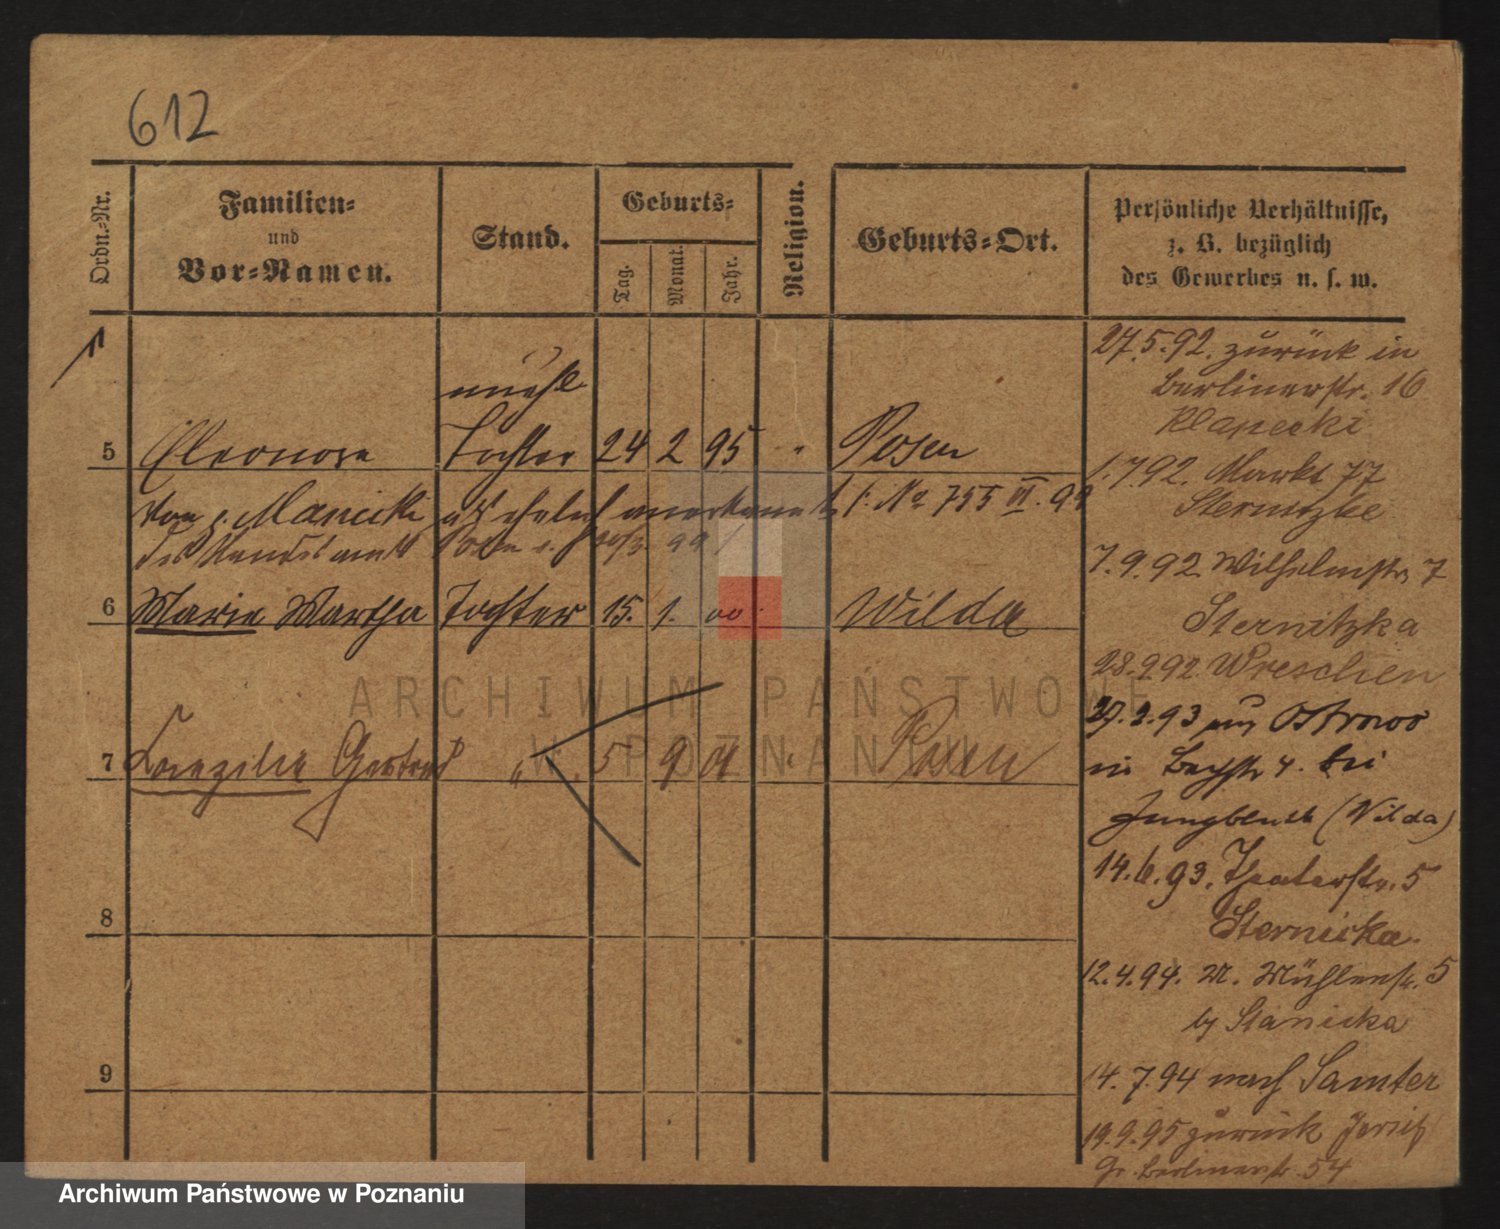 612
Ordn.-Nr.
Familien-
und
Vor-Namen.
Stand.
Geburts-
Tag.
Monat.
Jahr.
Religion.
Geburts-Ort.
Persönliche Verhältnisse,
z. B. bezüglich
des Gewerbes u. s. w.
5 Eleonore Tochter 24 2 95 " Posen
von p. Manicki als ehelich anerkannt
des Standesamts
6 Marie Martha Tochter 15. 1. 00 Wilda
7 Gertrud " 5 9 01 " Posen
8
9
27.5.92. zurück in
Berlinerstr. 16
Klapecki
1.7.92. Markt 77
Sternitzke
7.9.92 Wilhelmstr. 7
Sternitzka
28.9.92. Wreschen
29.3.93 aus Ostrowo
in 4. bei
(Wilda)
14.6.93. Theaterstr. 5
Sternicka.
12.4.94. M. Mühlenstr. 5
by Stanicka
14.7.94 nach Samter
19.9.95 zurück Jersitz
Gr. Berlinerstr. 54
ARCHIWUM PAŃSTWOWE
W POZNANIU
Archiwum Państwowe w Poznaniu